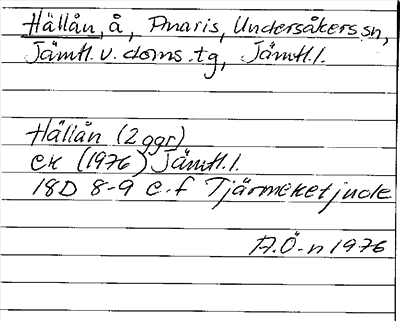 Hällån, å, Anaris, Undersåkers sn,
Jämtl. v. doms.tg, Jämtl.l.
Hällån (2 ggr)
ek (1976) Jämtl.l.
18D 8-9 e-f Tjärmeketjuole
A.Ö-n 1976